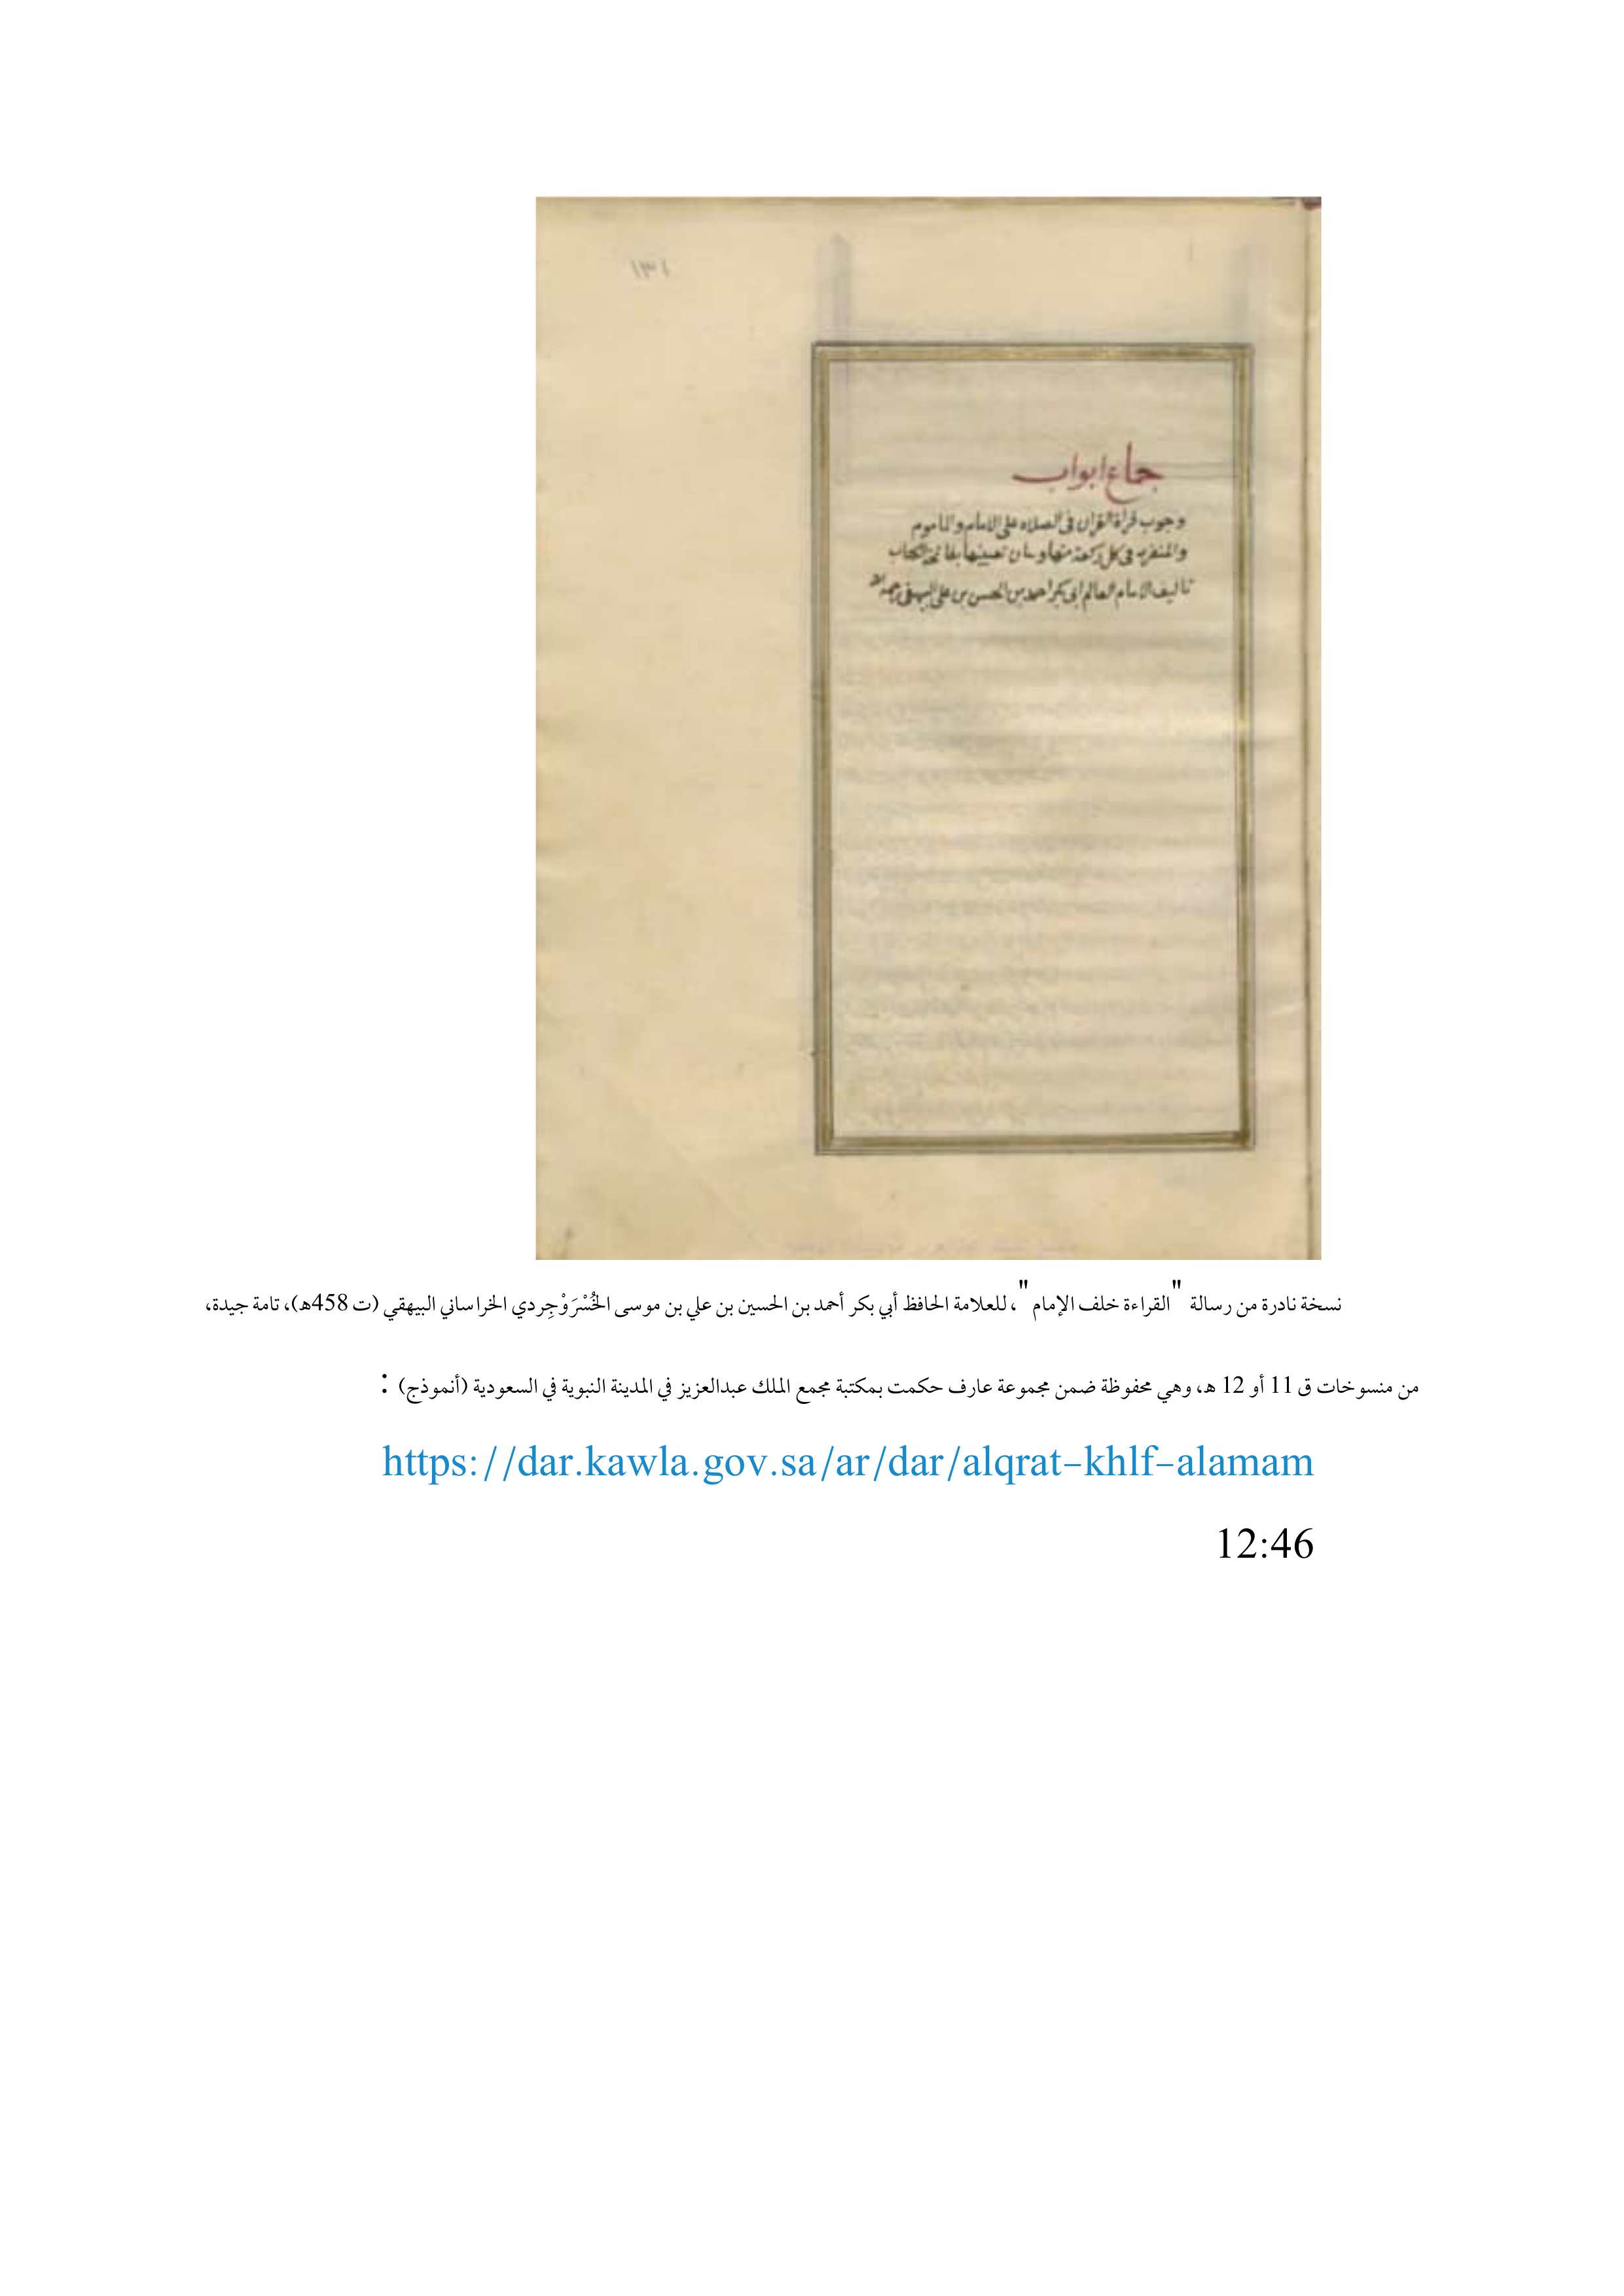 ١٣١
جماع ابواب
وجوب قراة القران فى الصلاه على الامام والماموم
والمنفرد فى كل ركعة منها وبيان تعيينها بفاتحة الكتاب
تاليف الامام العالم ابى بكر احمد بن الحسين بن على البيهقى رحمه الله
نسخة نادرة من رسالة "القراءة خلف الإمام"، للعلامة الحافظ أبي بكر أحمد بن الحسين بن علي بن موسى الخُسْرَوْجِردي الخراساني البيهقي (ت 458ه)، تامة جيدة،
من منسوخات ق 11 أو 12 ه، وهي محفوظة ضمن مجموعة عارف حكمت بمكتبة مجمع الملك عبدالعزيز في المدينة النبوية في السعودية (أنموذج) :
https://dar.kawla.gov.sa/ar/dar/alqrat-khlf-alamam
12:46